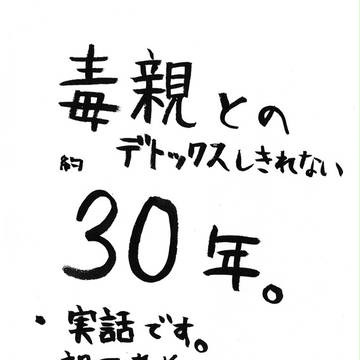 毒親との
デトックスしきれない
約
30年。
・実話です。